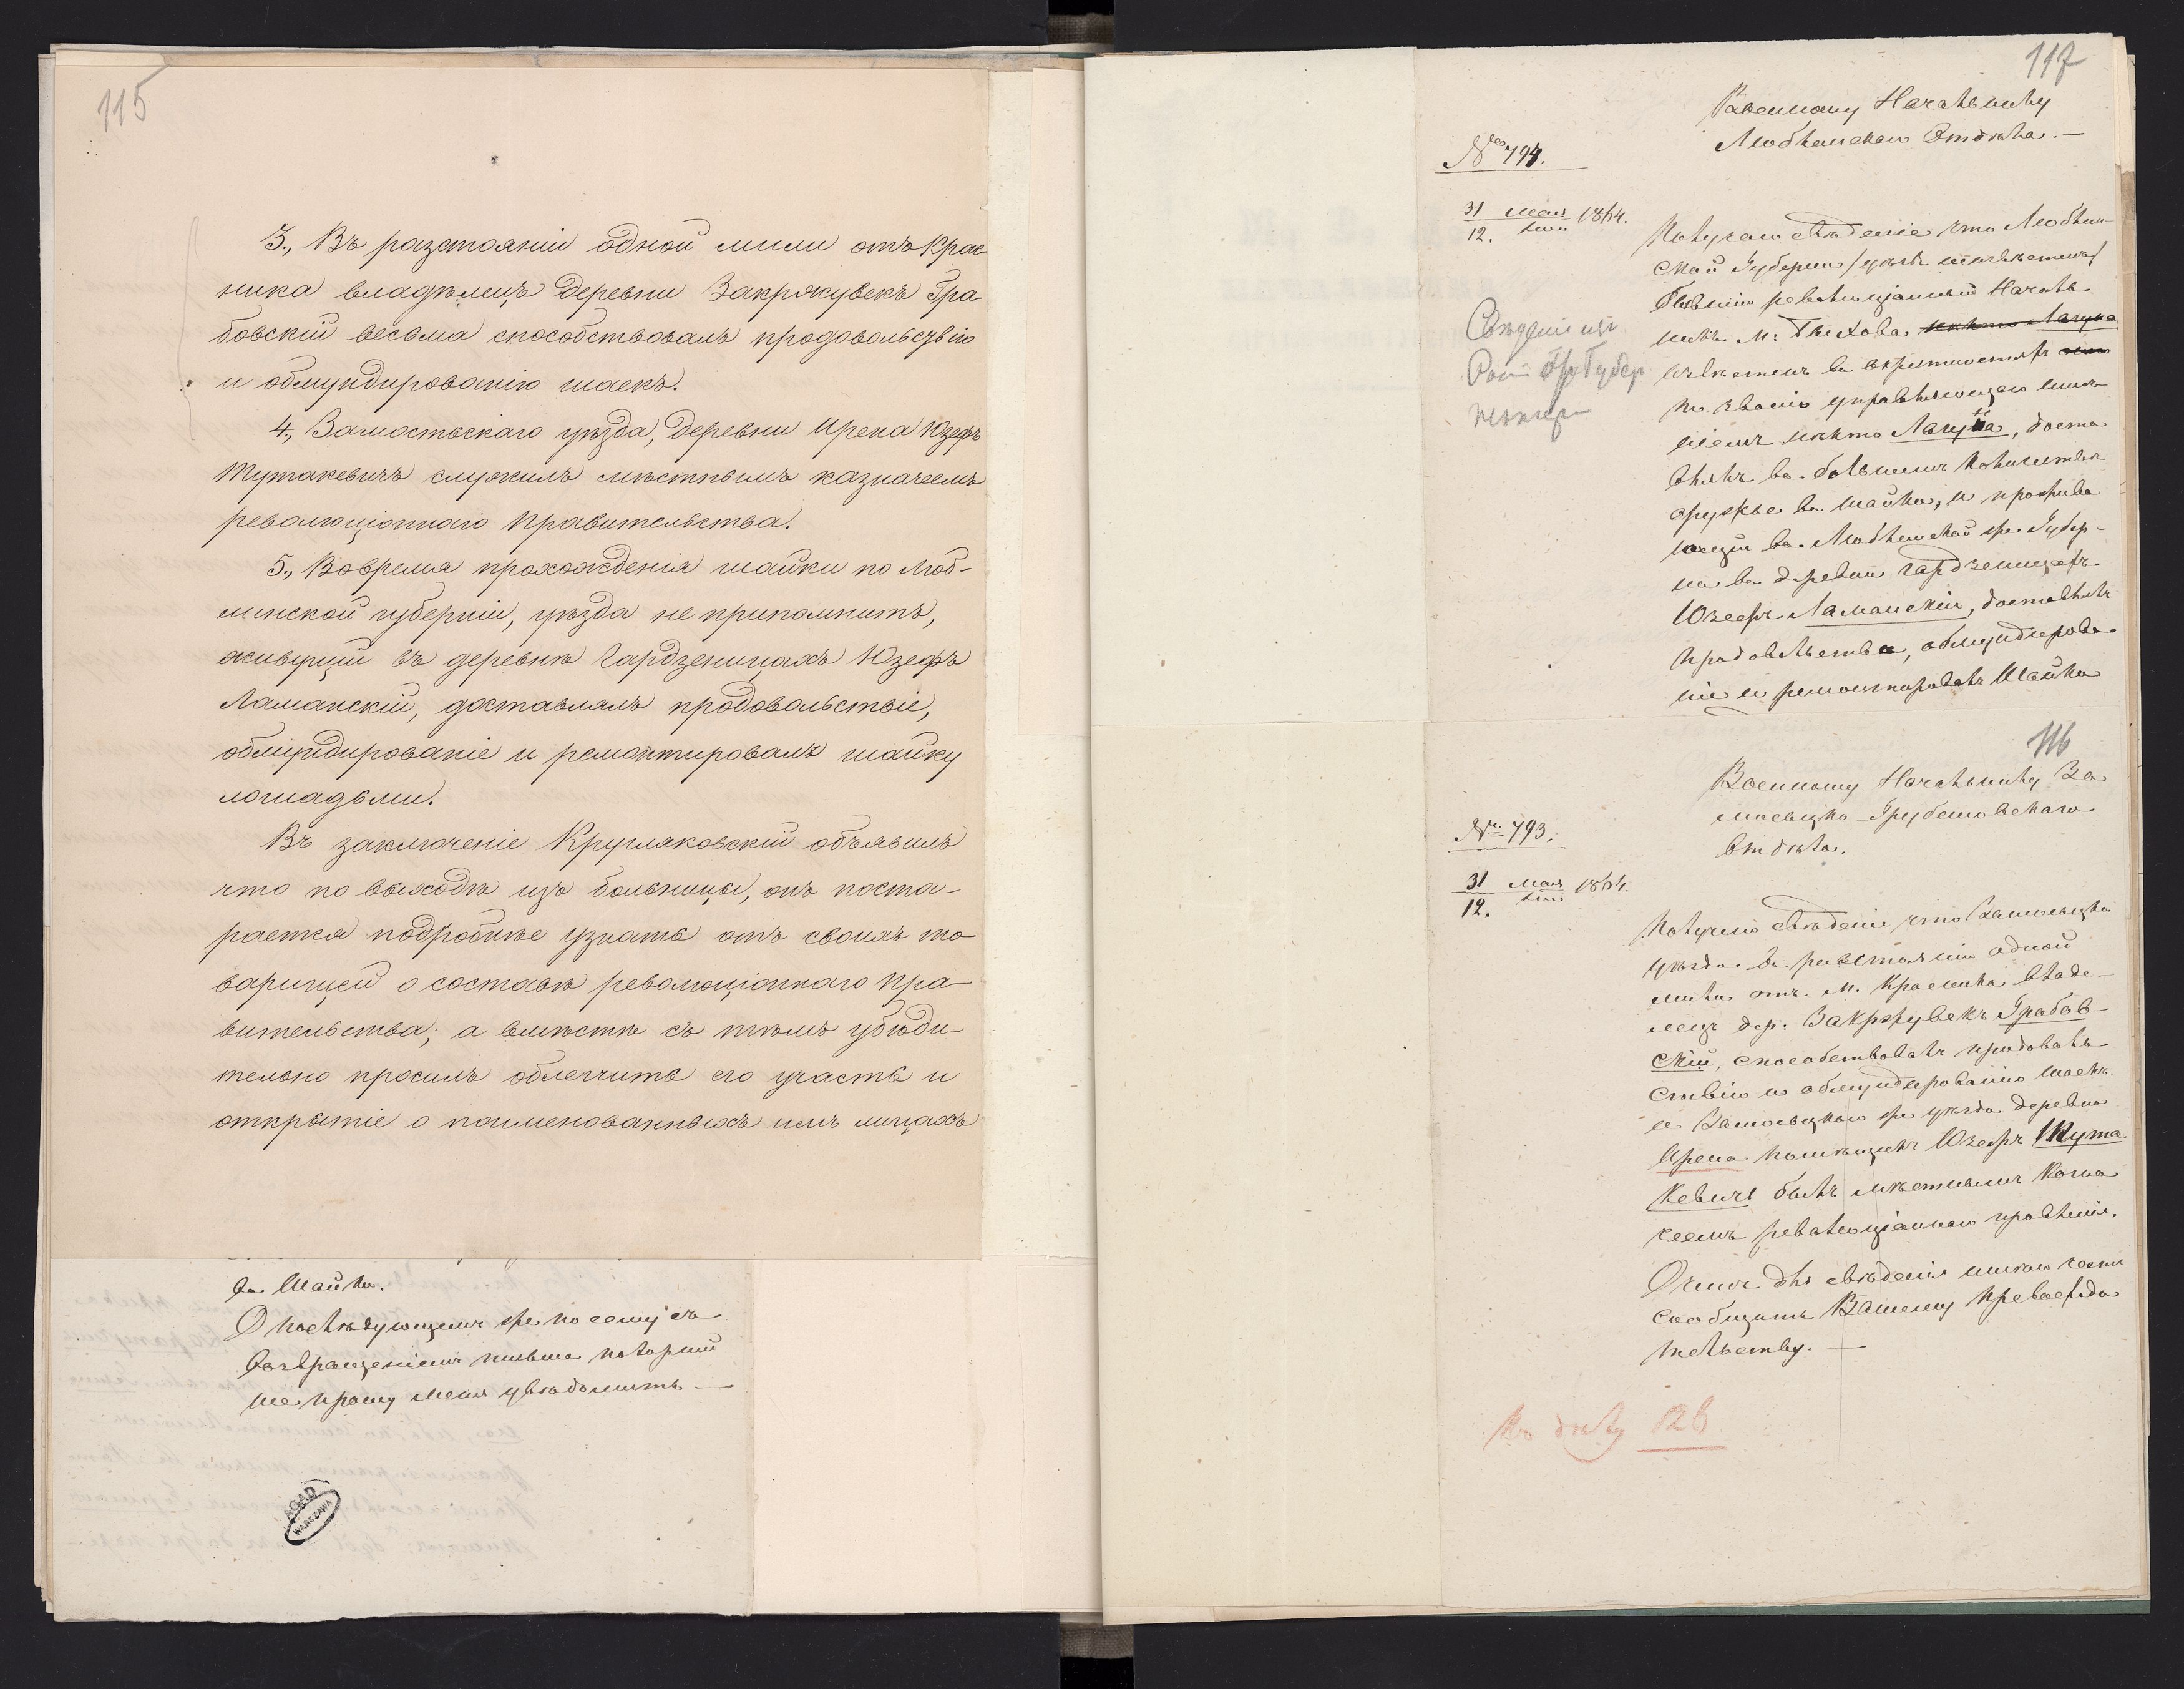 115
3., Въ разстояніи одной мили отъ Крас-
ника владѣлецъ деревни Закржувекъ Гра-
бовскій весьма способствовалъ продовольствію
и обмундированію шаекъ.
4., Замостьскаго уѣзда, деревни Ирена Юзефъ
Шутакевичъ служилъ мѣстнымъ казначеемъ
революціоннаго правительства.
5., Вовремя прохожденія шайки по Люб-
линской губерніи, уѣзда не припомнитъ,
живущій въ деревнѣ Гардзеницахъ Юзефъ
Ламанскій, доставлялъ продовольствіе,
обмундированіе и ремонтировалъ шайку
лошадьми.
Въ заключеніе Кругляковскій объявилъ
что по выходѣ изъ больницы, онъ поста-
рается подробнѣе узнать отъ своихъ то
варищей о составѣ революціоннаго пра
вительства; а вмѣстѣ съ тѣмъ убѣди-
тельно просилъ облегчить его участь и
открытіе о поименованныхъ имъ лицахъ
въ Шайки.
О послѣдующемъ же по сему съ
возвращеніемъ письма
не прошу меня увѣдомить —
AGAD
WARSZAWA
117
Военному Начальнику
Люблинскаго Отдѣла. —
№ 794.
31 Мая 1864.
12. Іюн
Получено свѣденіе что Люблин-
ской Губерніи
бывшій революціонный Началь-
никъ М.
въ окрестностяхъ
по званію управляющаго имѣ-
ніемъ нѣкто Лагуна, доста
влялъ въ большомъ количествѣ
оружье въ шайки, и прожива
ющій въ Люблинской же Губер-
ніи въ деревни Гардзеницахъ
Юзефъ Ламанскій, доставлялъ
продовольствіе, обмундирова-
ніе и ремонтировалъ Шайки
116
Военному Начальнику За
мосьцко-Грубешовскаго
Отдѣла.
№ 793.
31 Мая 1864.
12. Іюн
Получено свѣденіе что Замосьцкаго
уѣзда въ разстояніи одной
мили отъ М. Красника владе-
лецъ дер. Закржувекъ Грабов-
скій, способствовалъ продоволь-
ствію и обмундированію шаекъ
и Замосьцкаго же уѣзда деревни
Ирена помѣщикъ Юзефъ Шута
кевичъ былъ мѣстнымъ Казна
чеемъ революціоннаго правленія.
О чемъ для свѣденія имѣю честь
сообщить Вашему Превосходи
тельству. —
Къ дѣлу 126